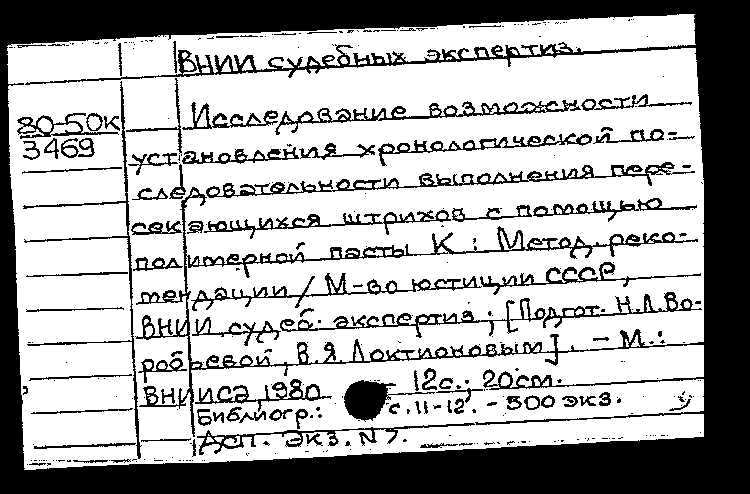 ВНИИ судебных экспертиз.
80-50к
3469
Исследование возможности
установления хронологической по-
следовательности выполнения пере-
секающихся штрихов с помощью
полимерной пасты К : Метод. реко-
мендации / М-во юстиции СССР,
ВНИИ судеб. экспертиз ; [Подгот. Н.Л. Во-
робьевой, В.Я. Локтионовым]. – М. :
ВНИИСЭ, 1980 – 12с. ; 20см.
Библиогр.: с. 11-12. – 500 экз.
Асп. экз. N7.